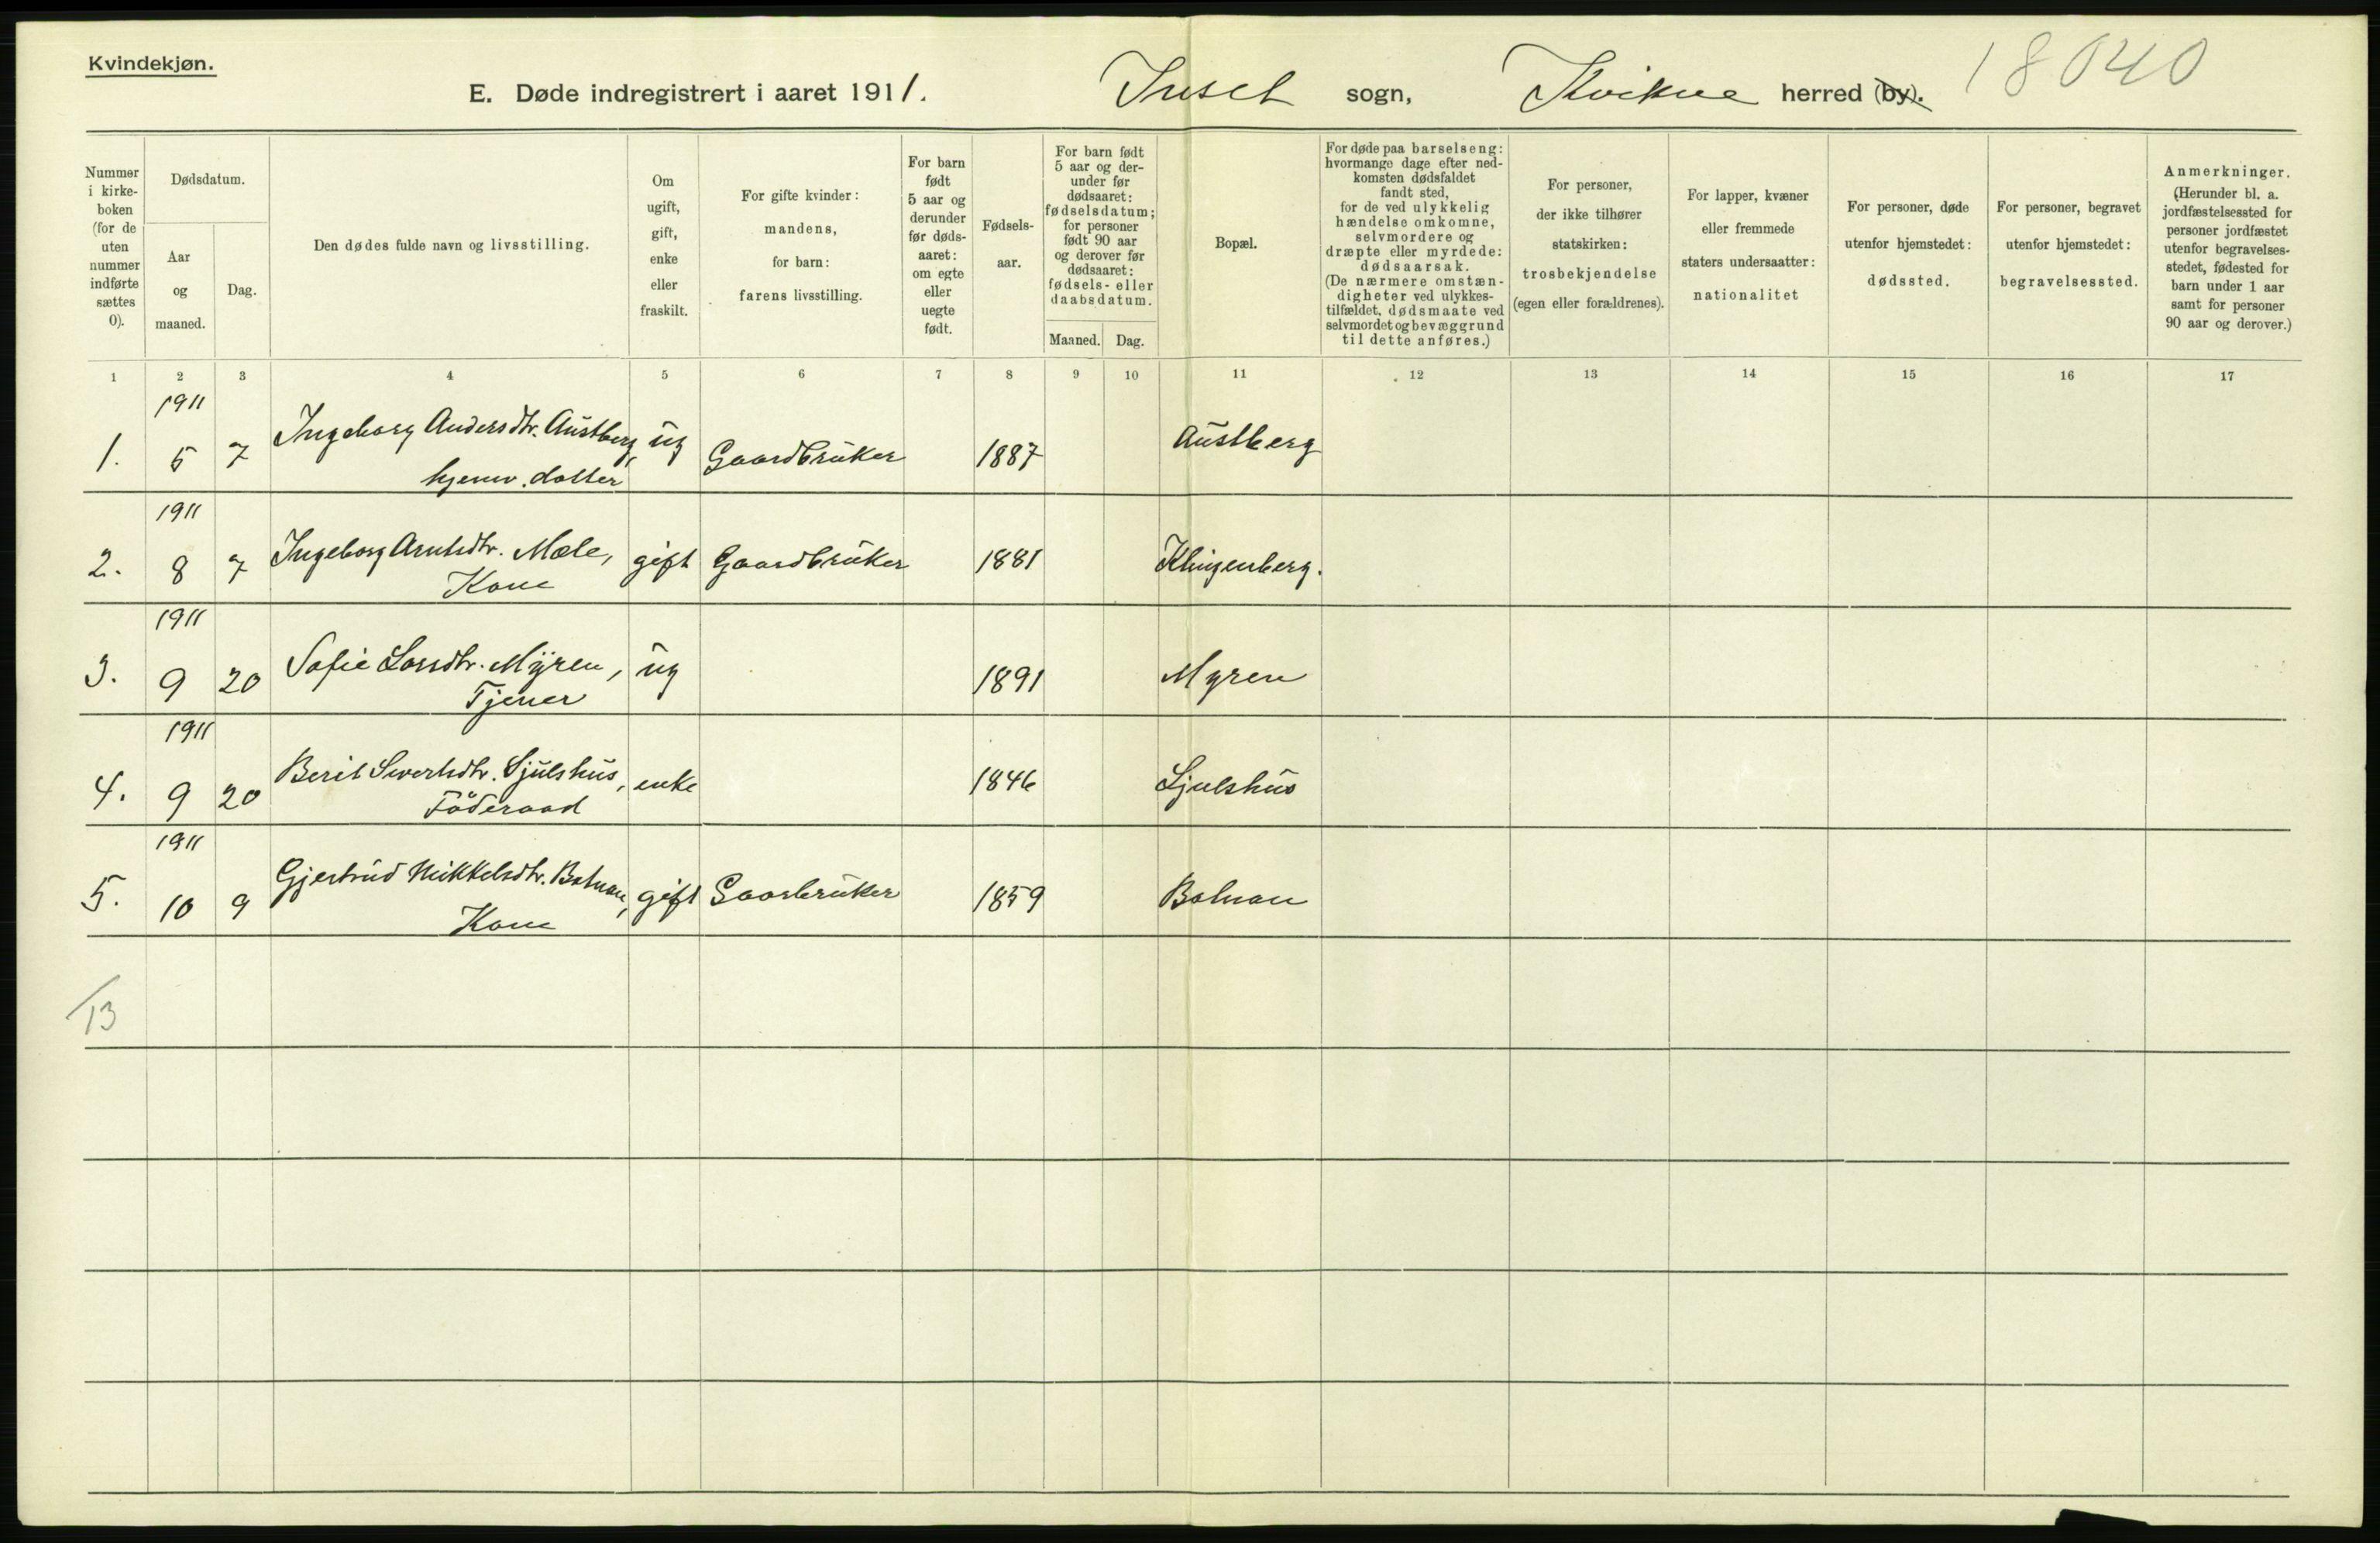 Kvindekjøn.
E. Døde indregistrert i aaret 1911. Inset sogn, Kvikne herred (by). 18040
Nummer i kirke-boken (for de uten nummer indførte sættes 0).
Dødsdatum.
Aar og maaned.
Dag.
Den dødes fulde navn og livsstilling.
Om ugift, gift, enke eller fraskilt.
For gifte kvinder: mandens, for barn: farens livsstilling.
For barn født 5 aar og derunder før døds-aaret: om egte eller uegte født.
Fødsels-aar.
For barn født 5 aar og der-under før dødsaaret: fødselsdatum; for personer født 90 aar og derover før dødsaaret: fødsels- eller daabsdatum.
Maaned. Dag.
Bopæl.
For døde paa barselseng: hvormange dage efter ned-komsten dødsfaldet fandt sted, for de ved ulykkelig hændelse omkomne, selvmordere og dræpte eller myrdede: dødsaarsak. (De nærmere omstæn-digheter ved ulykkes-tilfældet, dødsmaate ved selvmordet og bevæggrund til dette anføres.)
For personer, der ikke tilhører statskirken: trosbekjendelse (egen eller forældrenes).
For lapper, kvæner eller fremmede staters undersaatter: nationalitet
For personer, døde utenfor hjemstedet: dødssted.
For personer, begravet utenfor hjemstedet: begravelsessted.
Anmerkninger. (Herunder bl. a. jordfæstelsessted for personer jordfæstet utenfor begravelses-stedet, fødested for barn under 1 aar samt for personer 90 aar og derover.)
1 2 3 4 5 6 7 8 9 10 11 12 13 14 15 16 17
1911
1. 5 7 Ingeborg Andersdtr. Austberg, ug Gaardbruker 1887 Austberg
hjemv. datter
1911
2. 8 7 Ingeborg Arntsdtr. Mæle, gift Gaardbruker 1881 Klingenberg.
Kone
1911
3. 9 20 Sofie Larsdtr. Myren, ug 1891 Myren
Tjener
1911
4. 9 20 Berit Sivertsdtr. Sjulshus, enke 1846 Sjulshus
Föderaad
1911
5. 10 9 Gjertrud Mikkelsdtr. Bolman, gift Gaarbruker 1859 Bolman
Kone
13